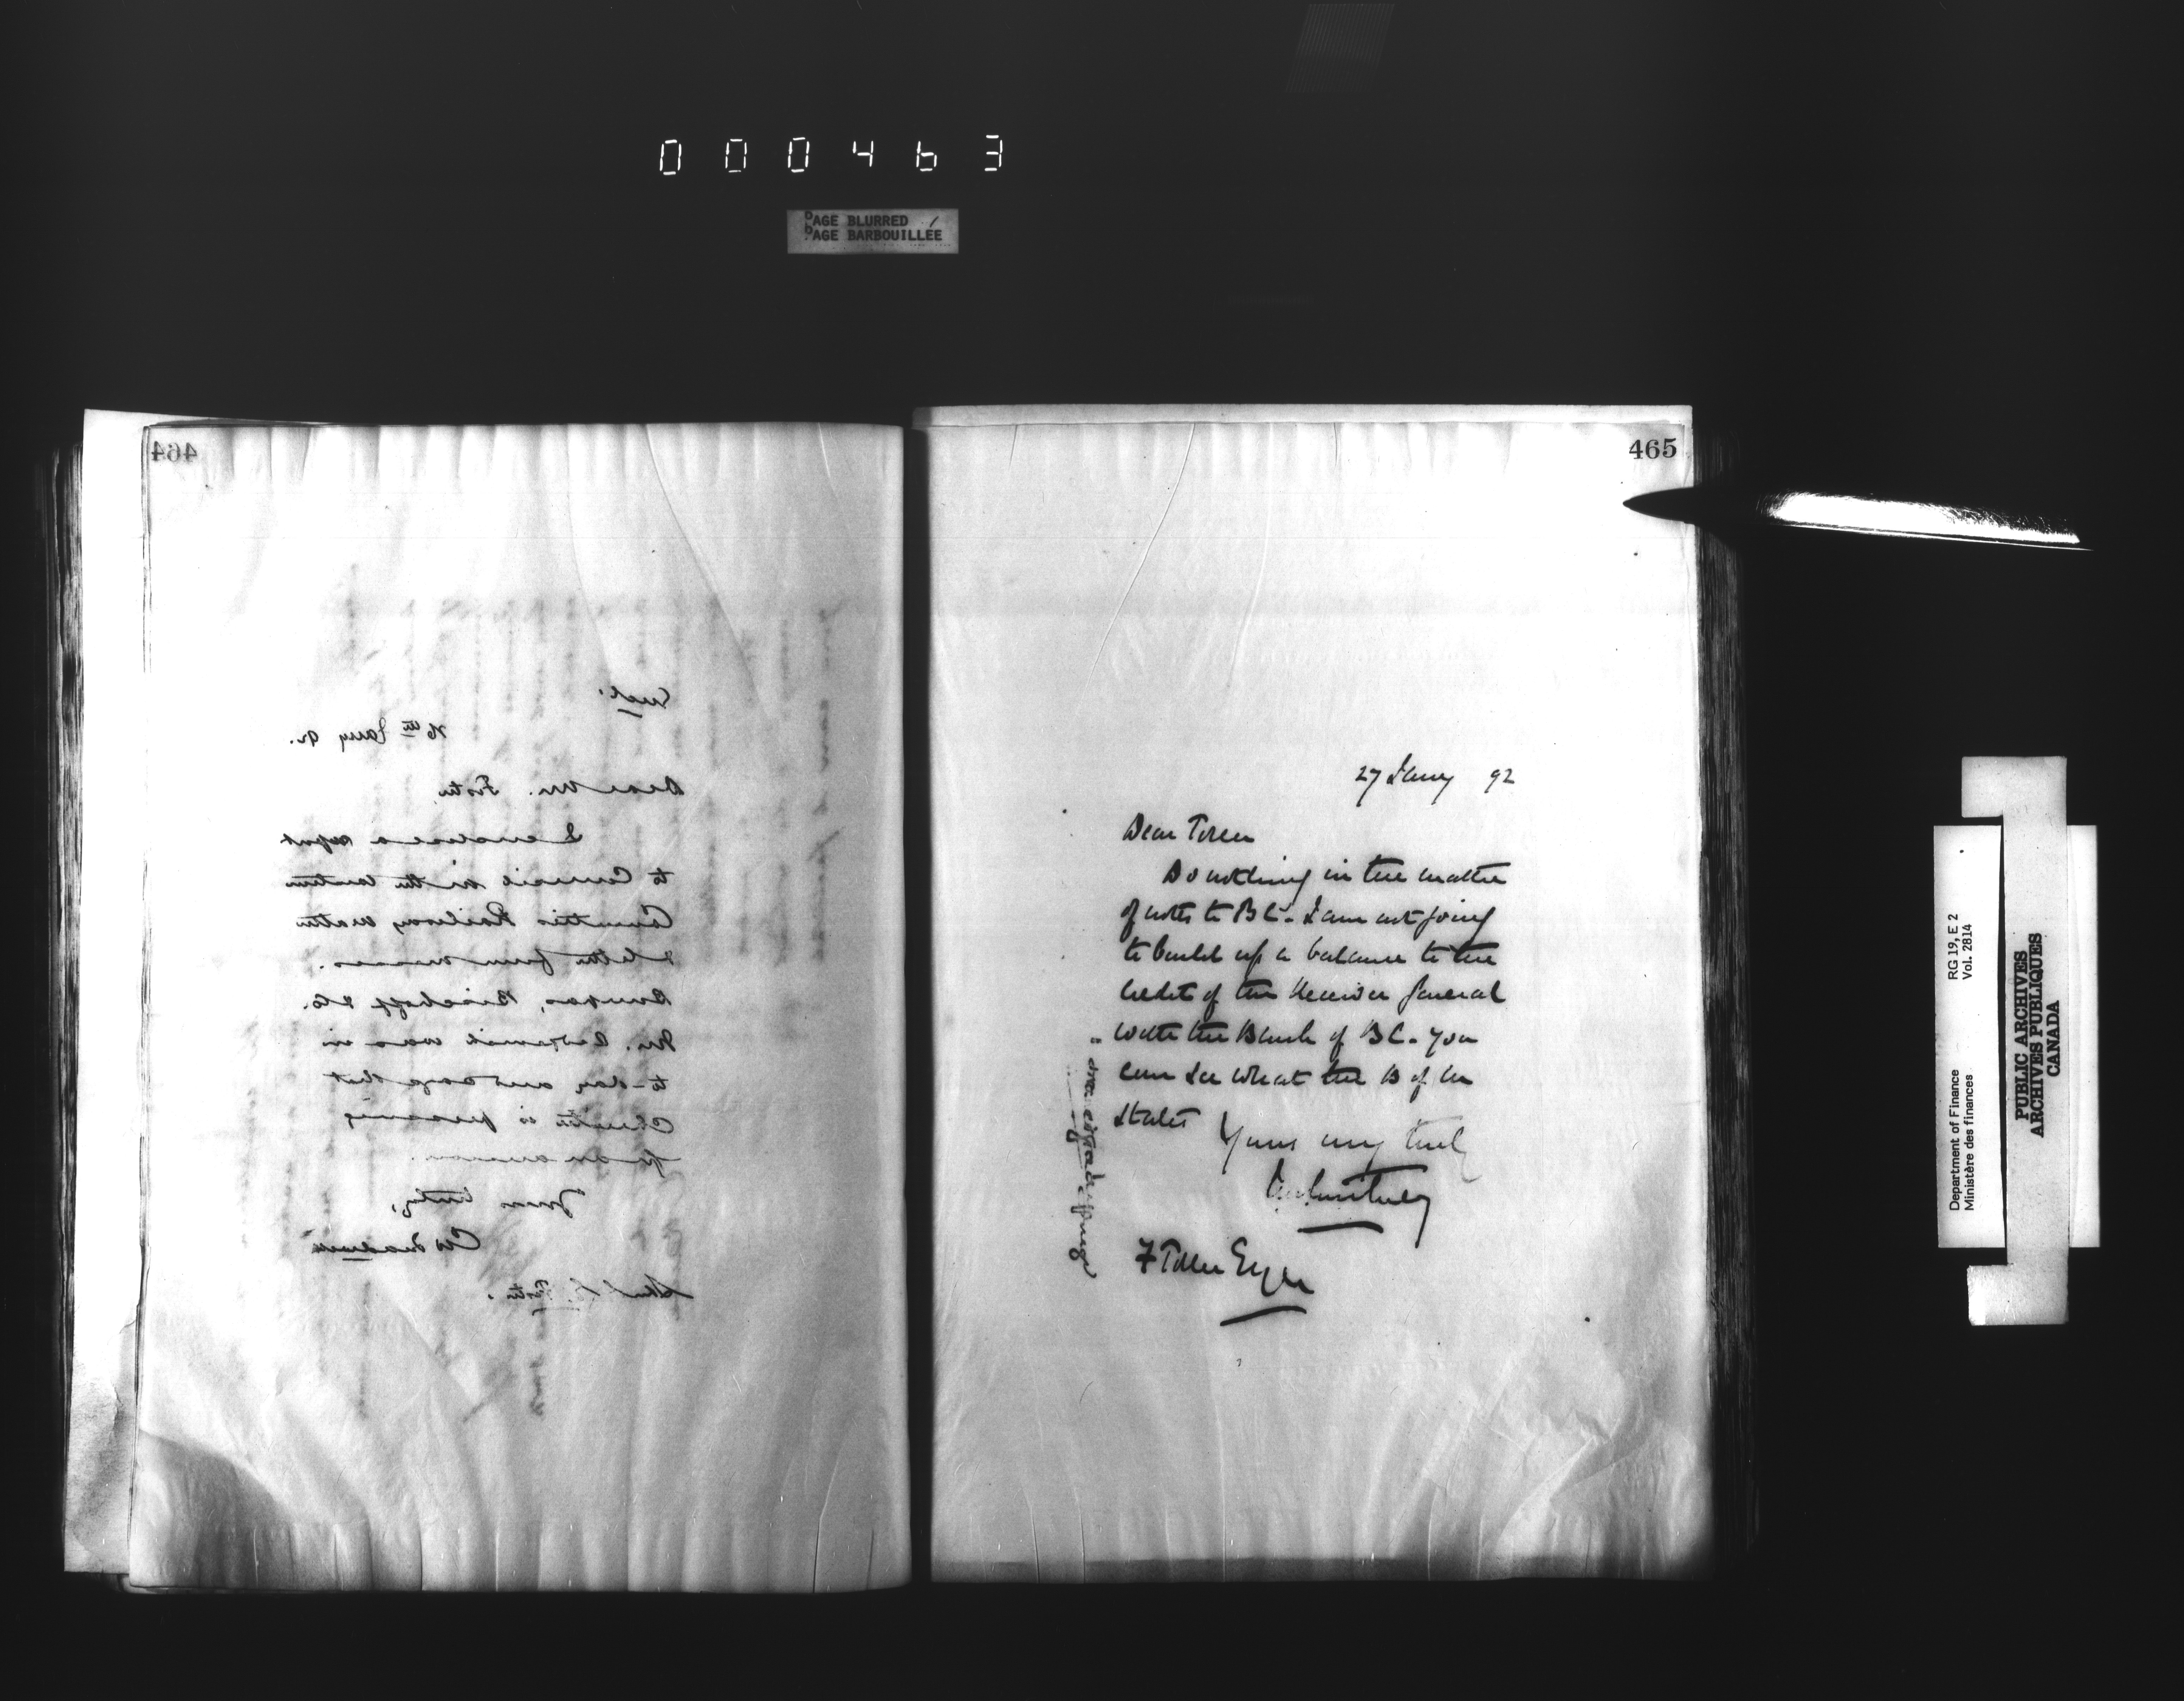 000463
PAGE BLURRED
PAGE BARBOUILLÉE
464
Encl.
26th Jany 92.
Dear Mr. Foster,
I enclose a report
to Council in the
Counties Railway matter
& letter from Messrs.
Bischoff & Co.
Mr. was in
to-day and says that
is pressing
for an answer.
Yours truly,
Foster.
465
27 Jany 92
Dear Toller
Do nothing in the matter
of notes to BC. I am not going
to build up a balance to the
Credit of the Receiver General
with the Bank of BC. You
can see what the B of M
states
Yours very truly
JM Courtney
F Toller Esqre
Department of Finance
Ministère des finances
RG 19, E 2
Vol. 2814
PUBLIC ARCHIVES
ARCHIVES PUBLIQUES
CANADA